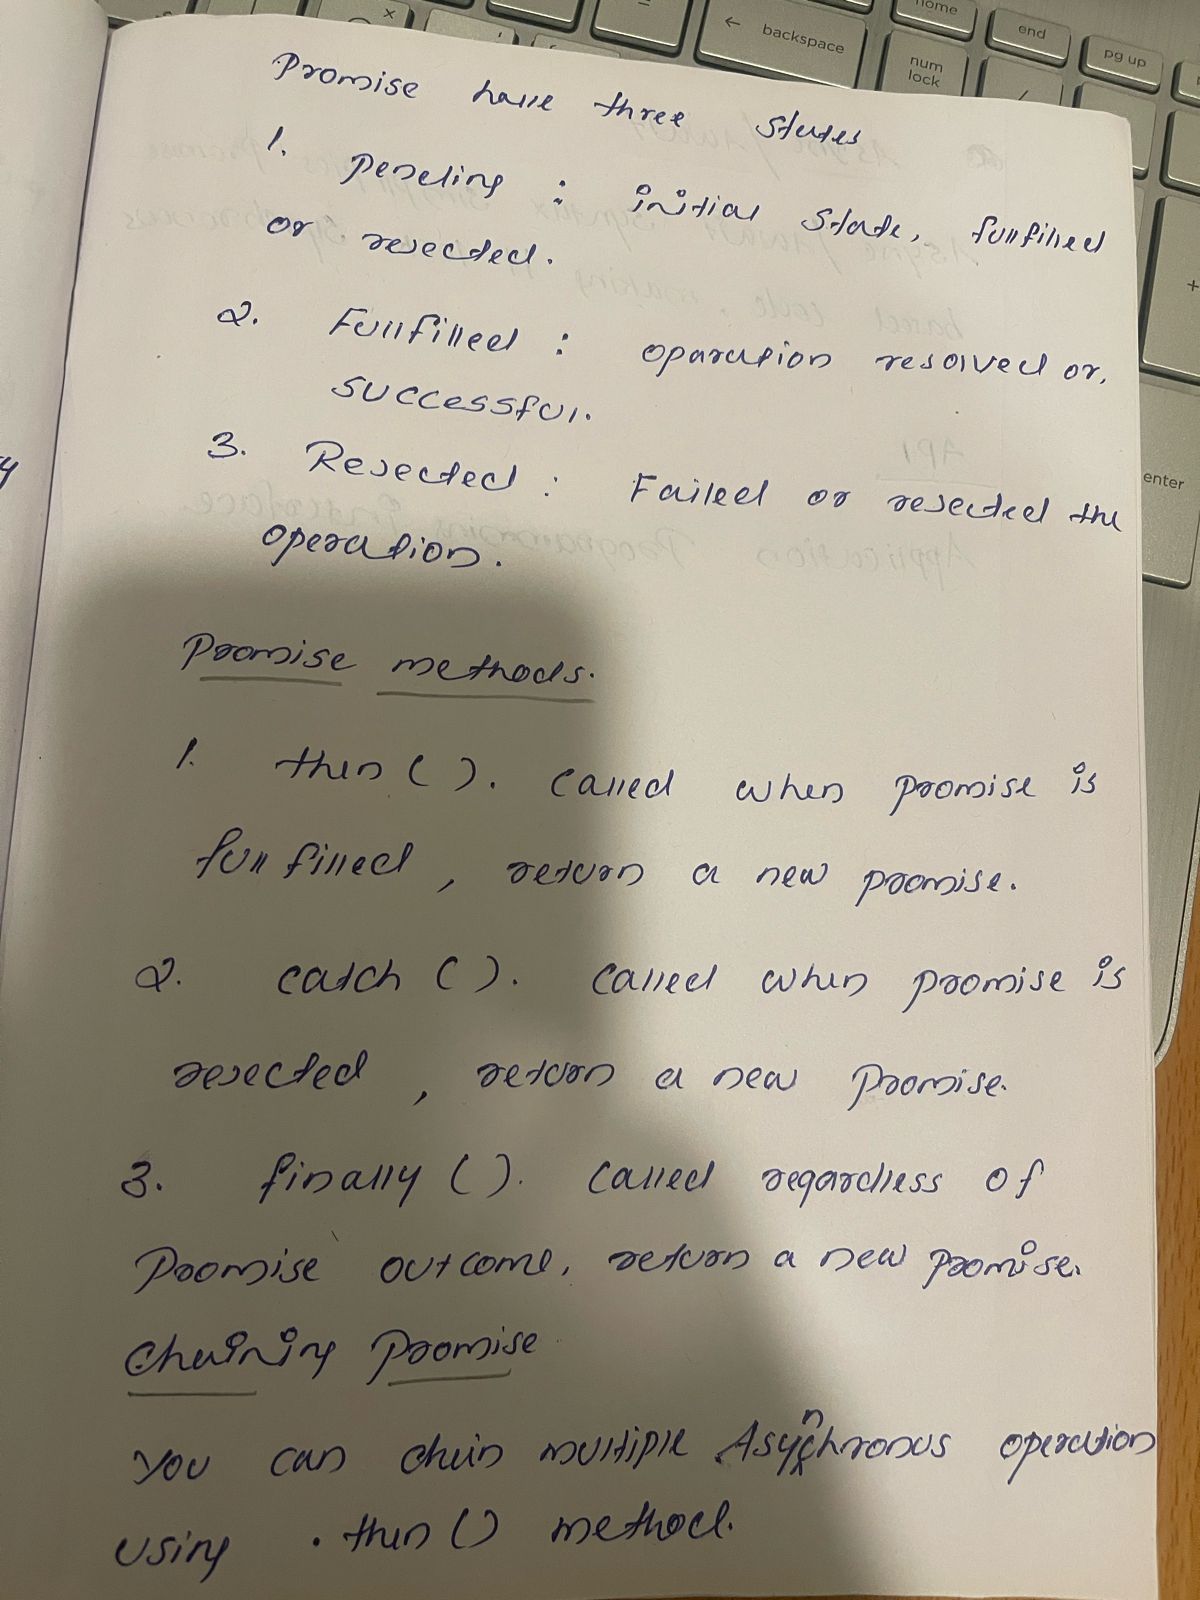 Promise have three states
1. pending : initial state, fullfilled
or rejected.
2. Fullfilled : oparation resolved or.
successful.
3. Rejected : Failed or rejected the
operation.
Promise methods.
1. then ( ). called when promise is
fullfilled , return a new promise.
2. catch ( ). called when promise is
rejected , return a new promise.
3. finally ( ). called regardless of
Promise outcome, return a new promise.
Chaining Promise
You can chain multiple Asynchronous operation
using .then () method.
backspace
home
end
pg up
num
lock
enter
API